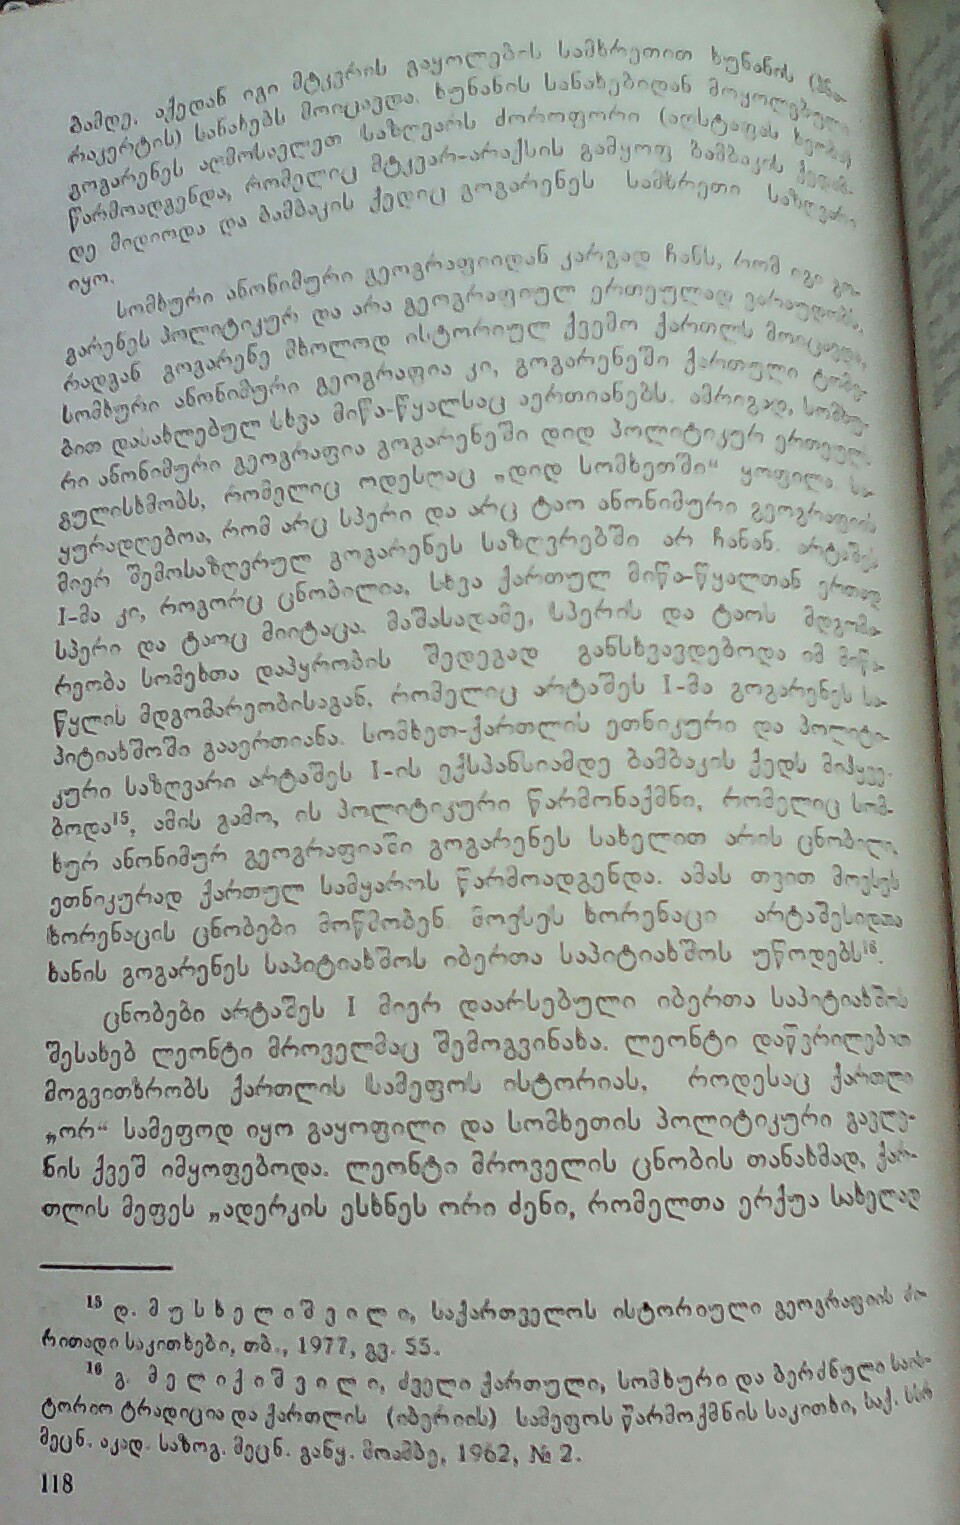 გამდე. აქედან იგი მტკვრის გაყოლების სამხრეთით ხუნანის
რაკერტის) სანახებს მოიცავდა. ხუნანის სანახებიდან მოყოლებული
გოგარენეს აღმოსავლეთ საზღვარს ძოროფორი (აღსტაფას ხეობა)
წარმოადგენდა, რომელიც მტკვარ-არაქსის გამყოფ ბამბაკის ქედამ-
დე მიდიოდა და ბამბაკის ქედიც გოგარენეს სამხრეთი საზღვარი
იყო.
სომხური ანონიმური გეოგრაფიიდან კარგად ჩანს, რომ იგი გო-
გარენეს პოლიტიკურ და არა გეოგრაფიულ ერთეულად ვარაუდობს,
რადგან გოგარენე მხოლოდ ისტორიულ ქვემო ქართლს მოიცავდა,
სომხური ანონიმური გეოგრაფია კი, გოგარენეში ქართული ტომე-
ბით დასახლებულ სხვა მიწა-წყალსაც აერთიანებს. ამრიგად, სომხუ-
რი ანონიმური გეოგრაფია გოგარენეში დიდ პოლიტიკურ ერთეულს
გულისხმობს, რომელიც ოდესღაც „დიდ სომხეთში“ ყოფილა. სა-
ყურადღებოა, რომ არც სპერი და არც ტაო ანონიმური გეოგრაფიის
მიერ შემოსაზღვრულ გოგარენეს საზღვრებში არ ჩანან. არტაშეს
I-მა კი, როგორც ცნობილია, სხვა ქართულ მიწა-წყალთან ერთად
სპერი და ტაოც მიიტაცა. მაშასადამე, სპერის და ტაოს მდგომა-
რეობა სომეხთა დაპყრობის შედეგად განსხვავდებოდა იმ მიწა-
წყლის მდგომარეობისაგან, რომელიც არტაშეს I-მა გოგარენეს სა-
პიტიახშოში გააერთიანა. სომხეთ-ქართლის ეთნიკური და პოლიტი-
კური საზღვარი არტაშეს I-ის ექსპანსიამდე ბამბაკის ქედს მიჰყვე-
ბოდა¹⁵, ამის გამო, ის პოლიტიკური წარმონაქმნი, რომელიც სომ-
ხურ ანონიმურ გეოგრაფიაში გოგარენეს სახელით არის ცნობილი,
ეთნიკურად ქართულ სამყაროს წარმოადგენდა. ამას თვით მოვსეს
ხორენაცის ცნობები მოწმობენ. მოვსეს ხორენაცი არტაშესიდთა
ხანის გოგარენეს საპიტიახშოს იბერთა საპიტიახშოს უწოდებს¹⁶.
ცნობები არტაშეს I მიერ დაარსებული იბერთა საპიტიახშოს
შესახებ ლეონტი მროველმაც შემოგვინახა. ლეონტი დაწვრილებით
მოგვითხრობს ქართლის სამეფოს ისტორიას, როდესაც ქართლი
„ორ“ სამეფოდ იყო გაყოფილი და სომხეთის პოლიტიკური გავლე-
ნის ქვეშ იმყოფებოდა. ლეონტი მროველის ცნობის თანახმად, ქარ-
თლის მეფეს „ადერკის ესხნეს ორი ძენი, რომელთა ერქუა სახელად
¹⁵ დ. მუსხელიშვილი, საქართველოს ისტორიული გეოგრაფიის ძი-
რითადი საკითხები, თბ., 1977, გვ. 55.
¹⁶ გ. მელიქიშვილი, ძველი ქართული, სომხური და ბერძნული საის-
ტორიო ტრადიცია და ქართლის (იბერიის) სამეფოს წარმოქმნის საკითხი, საქ. სსრ
მეცნ. აკად. საზოგ. მეცნ. განყ. მოამბე, 1962, № 2.
118